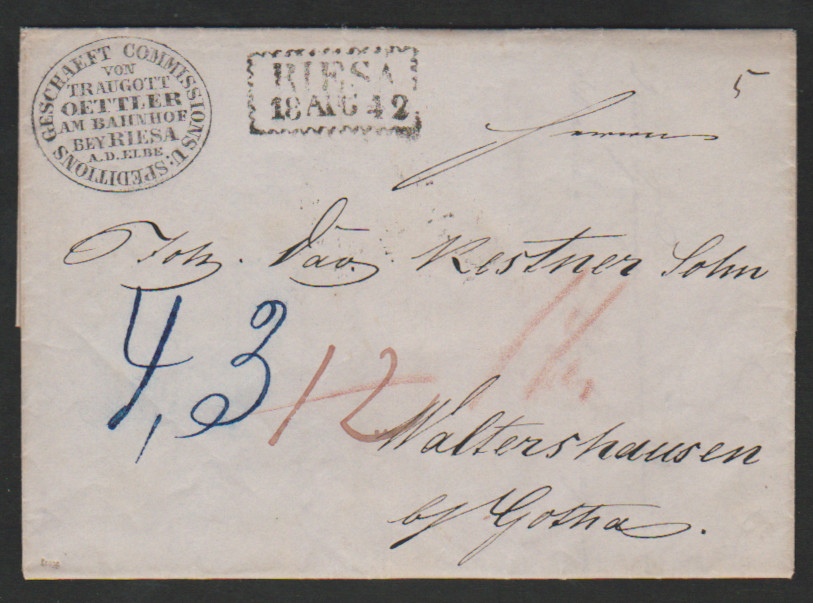 GESCHAEFT COMMISSIONS U: SPEDITIONS
VON
TRAUGOTT
OETTLER
AM BAHNHOF
BEY RIESA
A.D. ELBE
RIESA
18 AUG 42
5
Herrn
Joh. Dav. Kestner Sohn
4,3
12
Waltershausen
by Gotha.